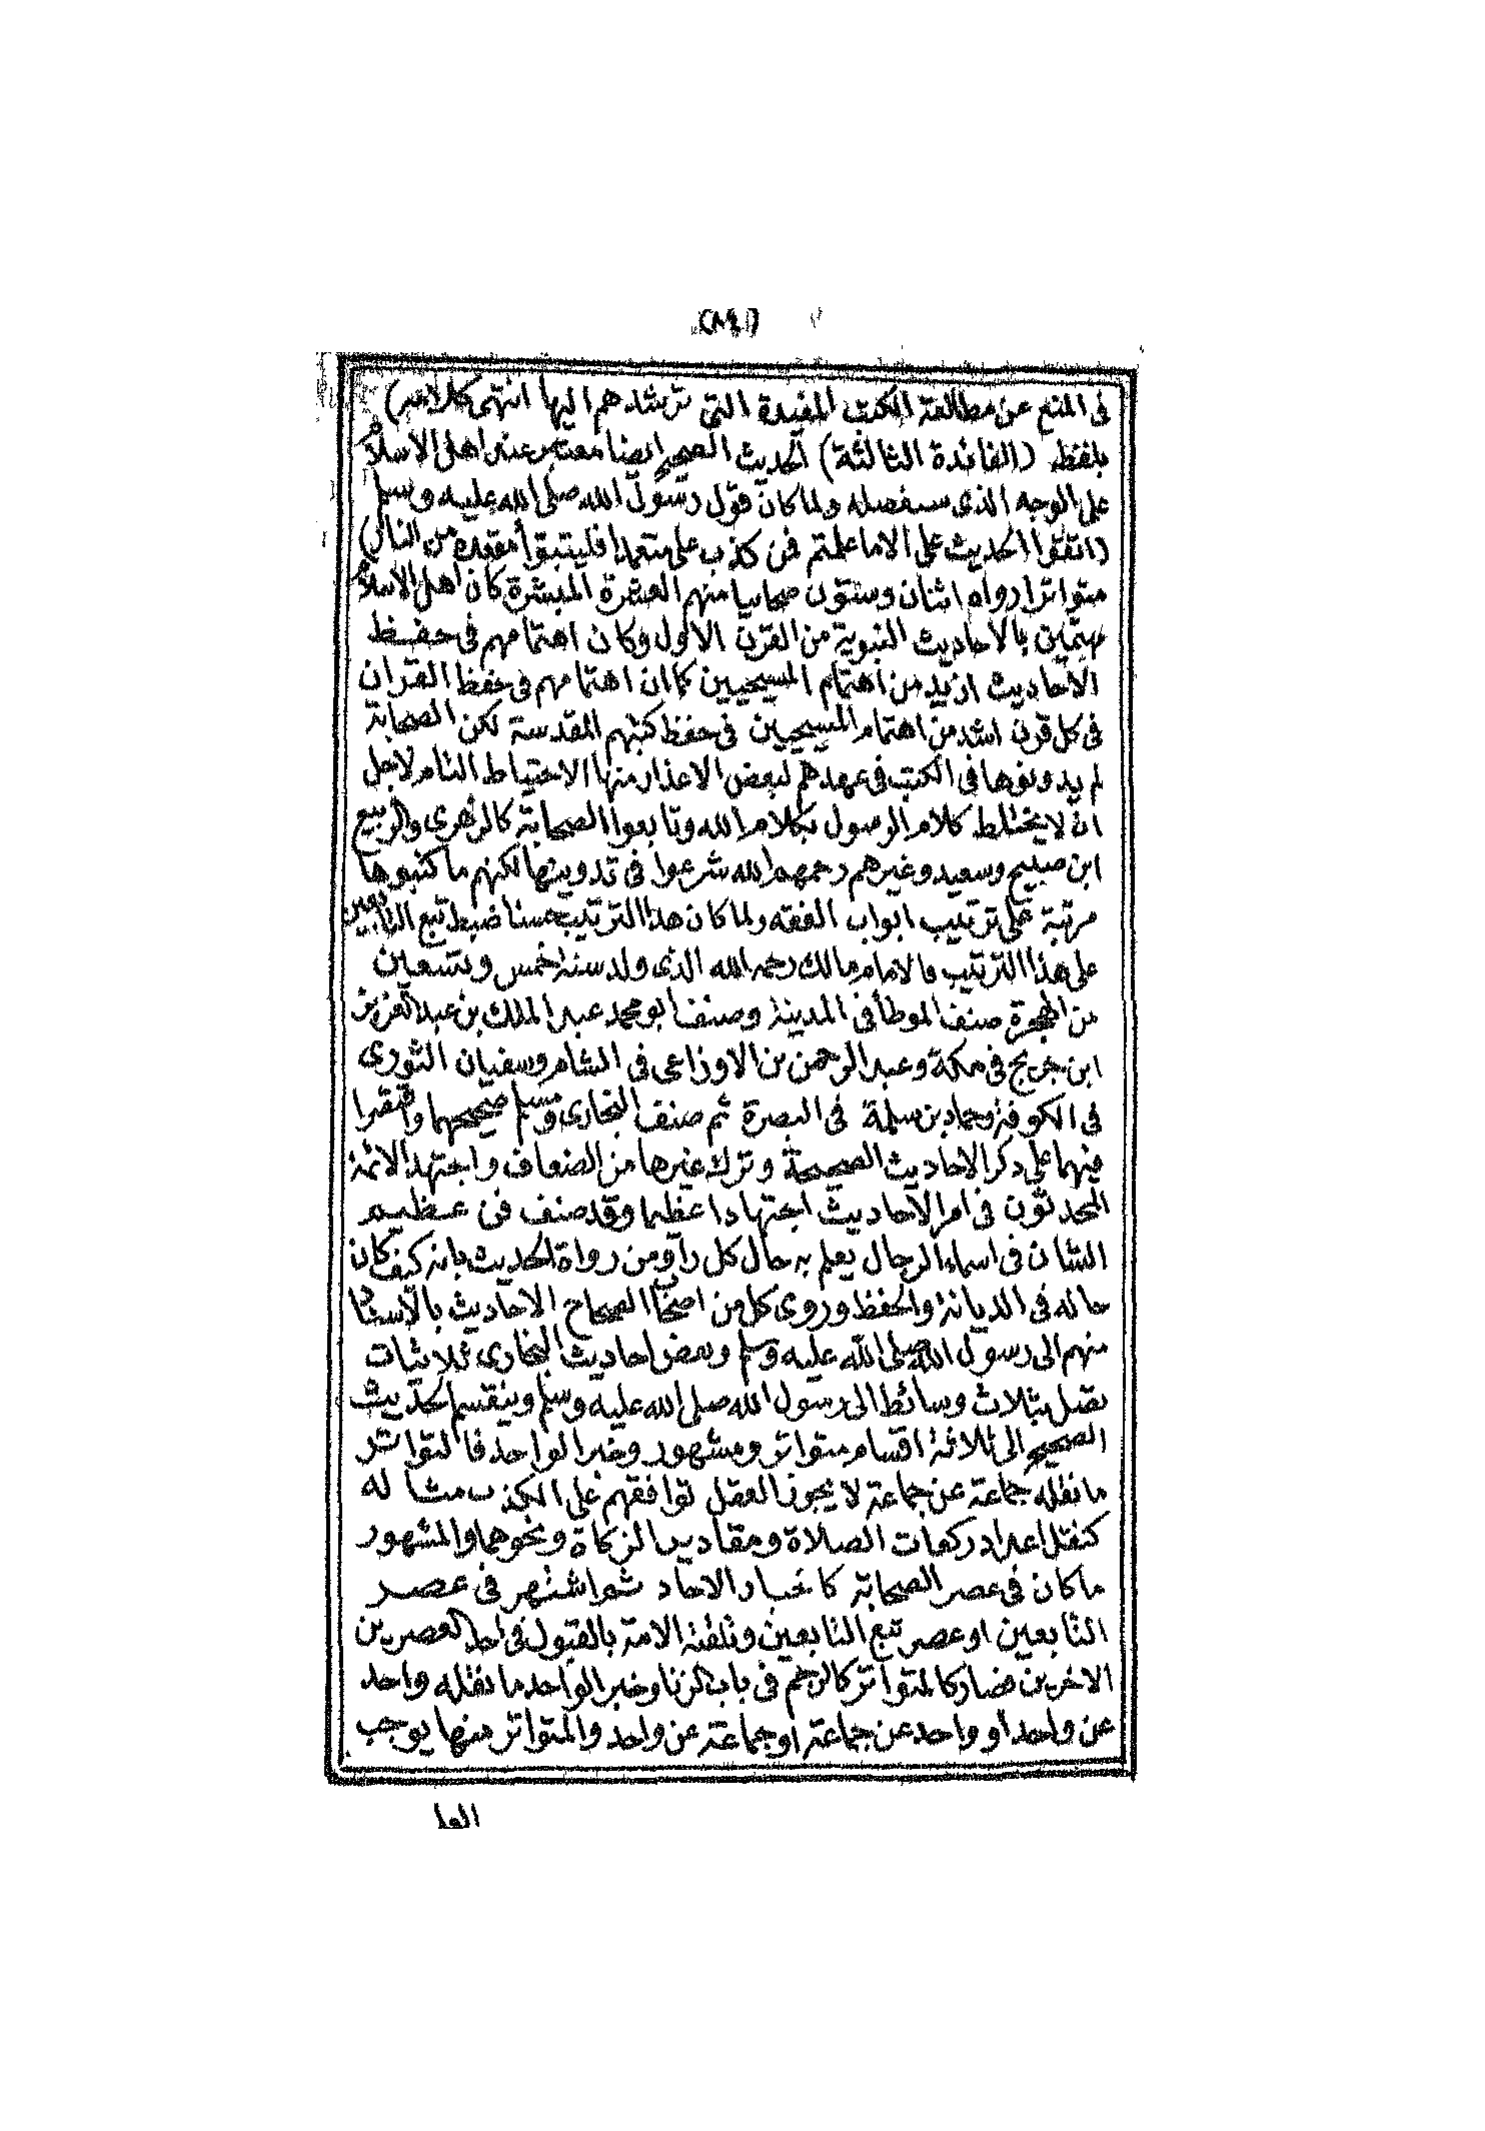 فى المنع عن مطالعة الكتب المفيدة التى ترشدهم اليها انتهى كلامه)
بلفظه (الفائدة الثالثة) الحديث الصحيح ايضا معتبر عند اهل الاسلام
على الوجه الذى سنفصله ولما كان قول رسول الله صلى الله عليه وسلم
(اتقوا الحديث على الا ما علمتم فمن كذب على متعمدا فليتبوأ مقعده من النار)
متواترا رواه اثنان وستون صحابيا منهم العشرة المبشرة كان اهل الاسلام
مهتمين بالاحاديث النبوية من القرن الاول وكان اهتمامهم فى حفظ
الاحاديث ازيد من اهتمام المسيحيين كما ان اهتمامهم فى حفظ القران
فى كل قرن اشد من اهتمام المسيحيين فى حفظ كتبهم المقدسة لكن الصحابة
لم يدونوها فى الكتب فى عهدهم لبعض الاعذار منها الاحتياط التام لاجل
ان لا يختلط كلام الرسول بكلام الله وتابعوا الصحابة كالزهرى والربيع
ابن صبيح وسعيد وغيرهم رحمهم الله شرعوا فى تدوينها لكنهم ما كتبوها
مرتبة على ترتيب ابواب الفقه ولما كان هذا الترتيب حسنا ضبط تبع التابعين
على هذا الترتيب فالامام مالك رحمه الله الذى ولد سنة خمس وتسعين
من الهجرة صنف الموطأ فى المدينة وصنف ابو محمد عبد الملك بن عبد العزيز
ابن جريج فى مكة وعبد الرحمن بن الاوزاعى فى الشام وسفيان الثورى
فى الكوفة وحماد بن سلمة فى البصرة ثم صنف البخارى ومسلم صحيحهما واقتصرا
فيهما على ذكر الاحاديث الصحيحة وترك غيرها من الضعاف واجتهد الائمة
المحدثون فى امر الاحاديث اجتهادا عظيما وقد صنف فن عظيم
الشان فى اسماء الرجال يعلم به حال كل راو من رواة الحديث بانه كيف كان
حاله فى الديانة والحفظ وروى كل من اصحاب الصحاح الاحاديث بالاسناد
منهم الى رسول الله صلى الله عليه وسلم وبعض احاديث البخارى ثلاثيات
تصل بثلاث وسائط الى رسول الله صلى الله عليه وسلم وينقسم الحديث
الصحيح الى ثلاثة اقسام متواتر ومشهور وخبر الواحد فالتواتر
ما نقله جماعة عن جماعة لا يجوز العقل توافقهم على الكذب مثاله
كنقل اعداد ركعات الصلاة ومقادير الزكاة ونحوهما والمشهور
ما كان فى عصر الصحابة كاخبار الاحاد ثم اشتهر فى عصر
التابعين او عصر تبع التابعين وتلقته الامة بالقبول فى احد العصرين
الاخرين فصار كالمتواتر كالرجم فى باب الزنا وخبر الواحد ما نقله واحد
عن واحد أو واحد عن جماعة او جماعة عن واحد والمتواتر منها يوجب
العلم